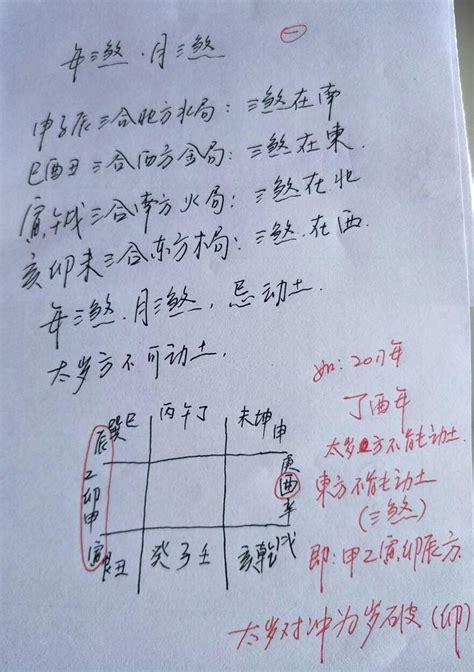 ㊀
年三煞.月三煞
申子辰三合北方水局:三煞在南
巳酉丑三合西方金局:三煞在東.
寅午戌三合南方火局:三煞在北
亥卯未三合东方木局:三煞.在西.
年三煞.月三煞,忌动土.
太岁方不可动土,
如:2017年
丁酉年
太岁方不能动土
東方不能动土
(三煞)
即:甲乙寅卯辰方.
太岁对冲为岁破(卯)
辰巽巳 丙午丁 未坤申
乙卯甲 庚酉辛
寅艮丑 癸子壬 亥乾戌